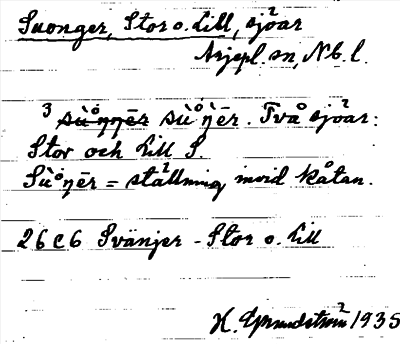 Suonger, Stor o. Lill, sjöar
Arjepl. sn, Nb. l.
3 sù̊ŋŋēr sù̊'ŋēr. Två sjöar:
Stor och Lill S.
Sù̊ŋēr = ställning invid kåtan.
26c6 Svänjer - Stor o. Lill
H. Grundström 1935